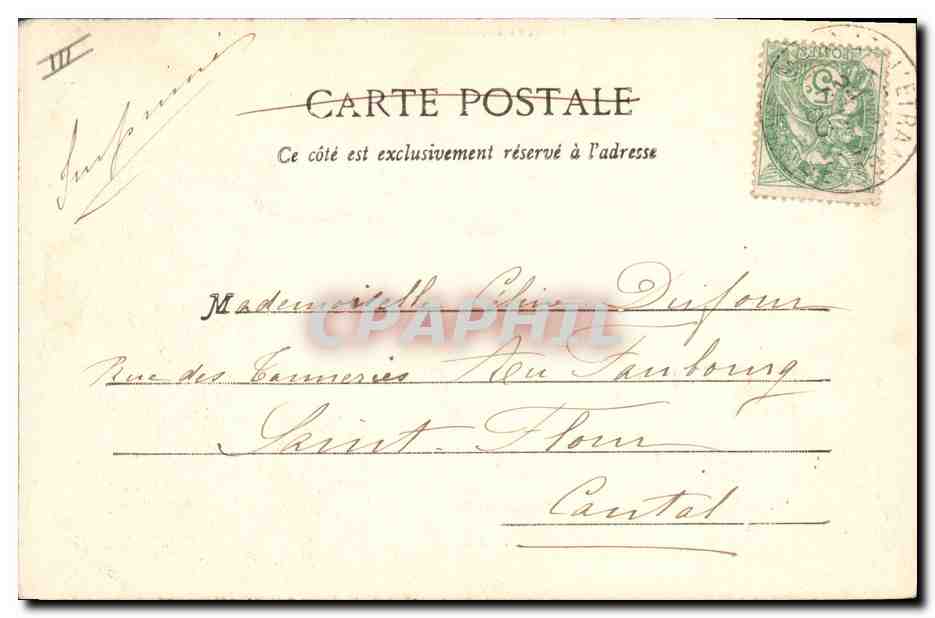 III
Imprimé
CARTE POSTALE
Ce côté est exclusivement réservé à l'adresse
POSTES
5
L'ETRA
Mademoiselle Céline Dufour
CPAPHIL
Rue des Tanneries Au Faubourg
Saint-Flour
Cantal